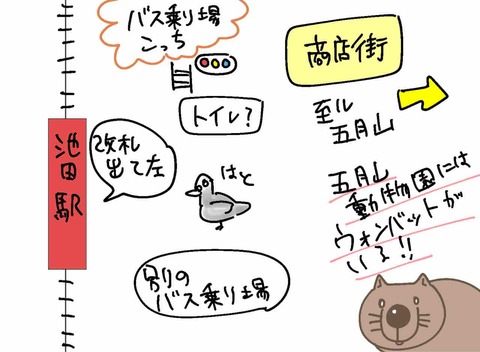 バス乗り場
こっち
商店街
トイレ？
至ル
五月山
池田駅
改札
出て左
はと
五月山
動物園には
ウォンバットが
いる!!
別の
バス乗り場